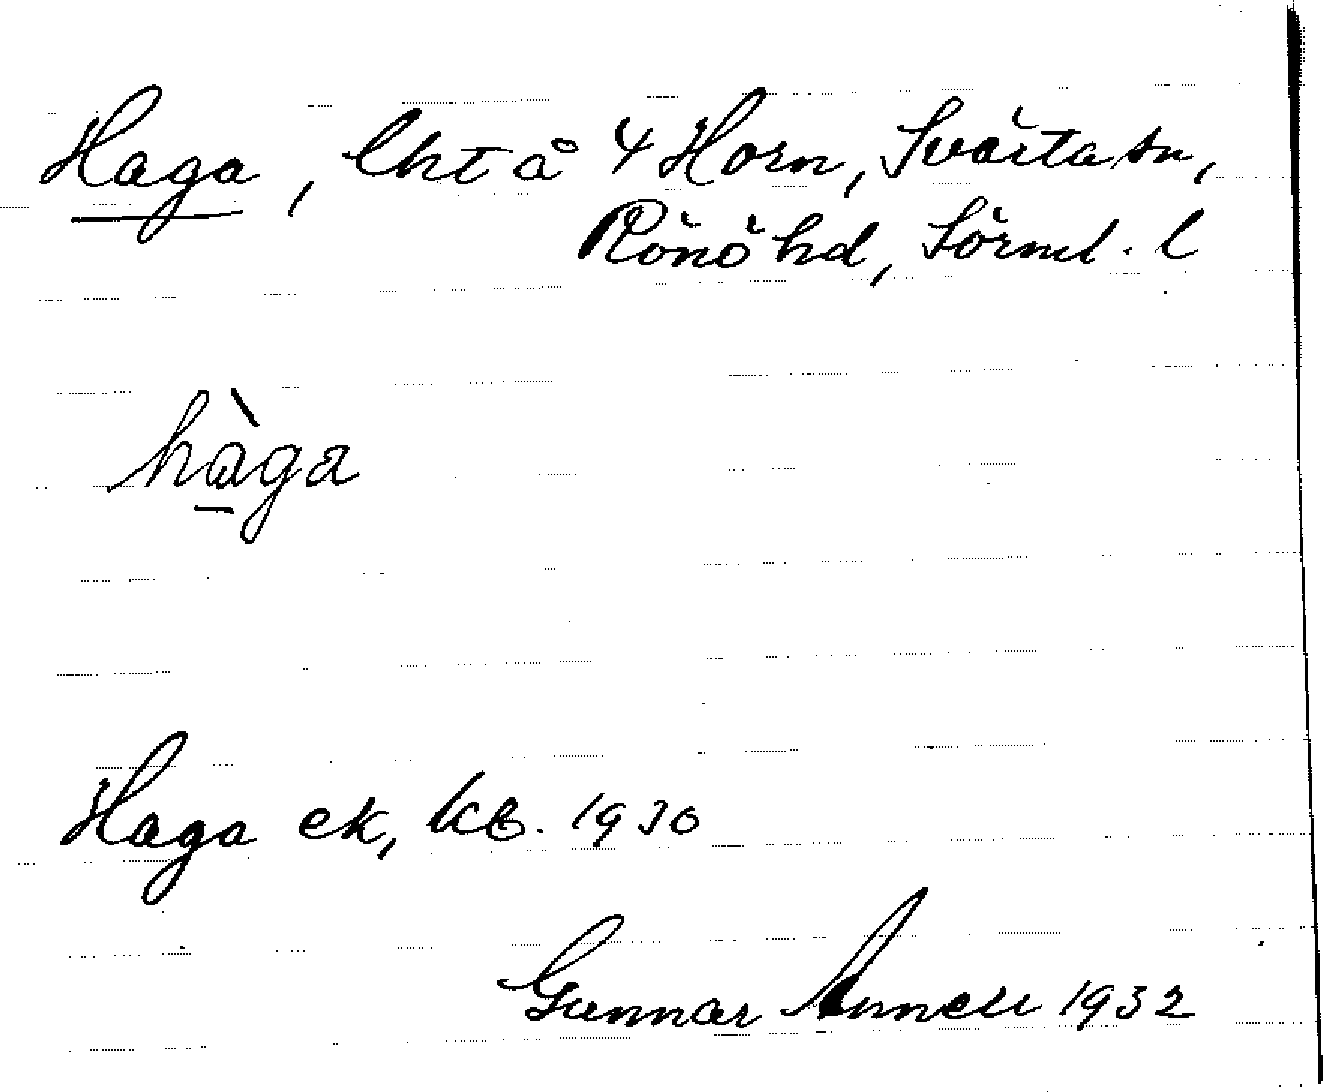 Haga, lht å 4 Horn, Svärta sn,
Rönö hd, Sörml. l
hàga
Haga ek, kb. 1930
Gunnar Annell 1932